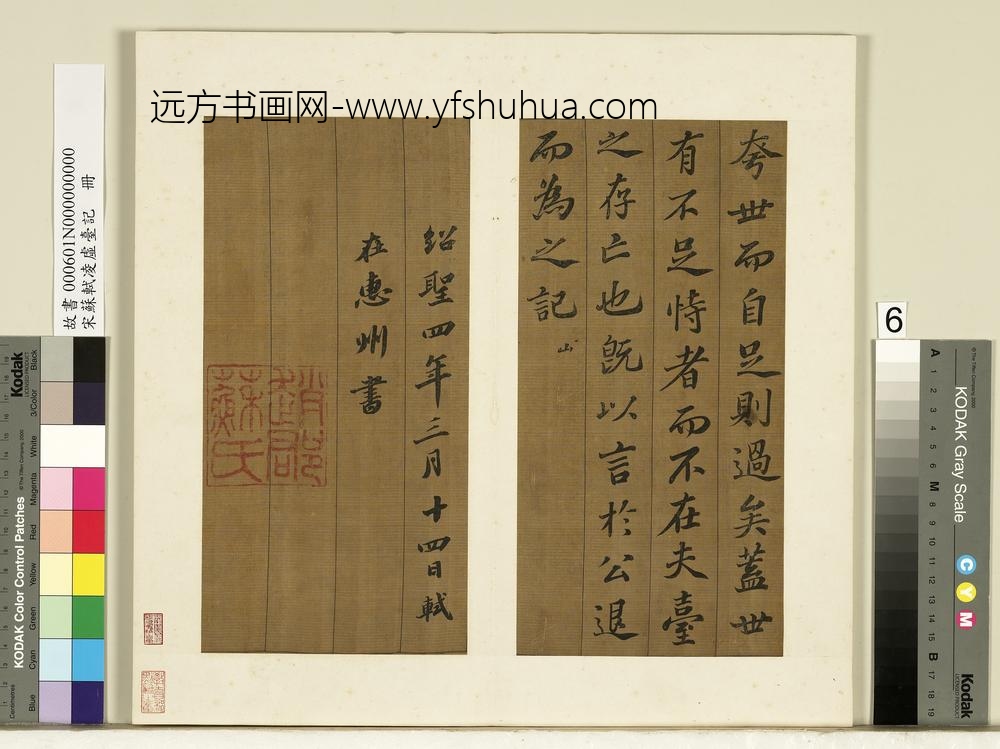 远方书画网-www.yfshuhua.com
夸世而自足則過矣蓋世
有不足恃者而不在夫臺
之存亡也既以言於公退
而為之記
紹聖四年三月十四日軾
在惠州書
趙郡
蘇氏
故書 000601N000000000
宋蘇軾凌虛臺記 冊
6
KODAK Color Control Patches
©The Tiffen Company, 2000
Kodak
LICENSED PRODUCT
Centimetres
Blue
Cyan
Green
Yellow
Red
Magenta
White
3/Color
Black
KODAK Gray Scale
© The Tiffen Company, 2000
Kodak
LICENSED PRODUCT
C
Y
M
A 1 2 3 4 5 6 M 8 9 10 11 12 13 14 15 B 17 18 19